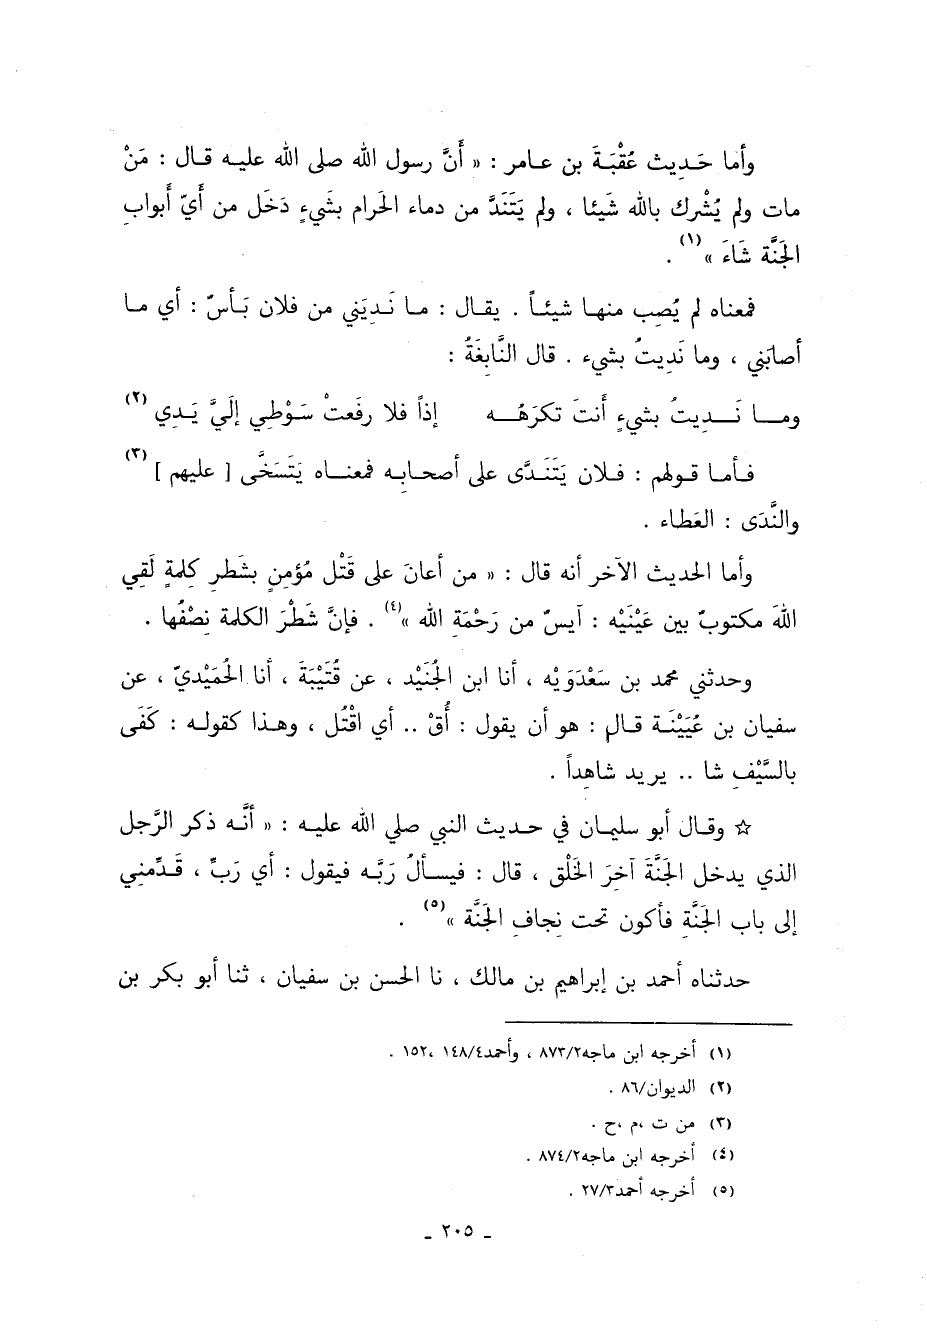 وأما حَديث عُقْبَةَ بن عامر : « أَنَّ رسول الله صلى الله عليه قال : مَنْ
مات ولم يُشْرك بالله شَيئا ، ولم يَتَنَدَّ من دماء الحَرام بشَيءٍ دَخَل من أَيّ أَبواب
الجَنَّة شَاءَ »(١) .
فمعناه لم يُصِب منها شيئاً . يقال : ما نَدِيَني من فلان بَأسٌ : أي ما
أصابَني ، وما نَدِيتُ بشيء . قال النَّابغَةُ :
وما نَديتُ بشَيءٍ أَنتَ تكرَهُه إذاً فلا رفَعتْ سَوْطِي إلَيَّ يَدِي (٢)
فأما قولهم : فلان يَتَنَدَّى على أصحابه فمعناه يَتَسَخَّى [ عليهم ] (٣)
والنَّدَى : العَطاء .
وأما الحديث الآخر أنه قال : « من أعانَ على قَتْل مُؤمنٍ بشَطرِ كلمةٍ لَقِي
اللهَ مكتوبٌ بين عَيْنَيْه : آيسٌ من رَحْمَةِ الله »(٤) . فإنَّ شَطْرَ الكلمة نِصْفُها .
وحدثني محمد بن سَعْدَوَيْه ، أنا ابن الجُنَيْد ، عن قُتَيْبَةَ ، أنا الحُمَيْديّ ، عن
سفيان بن عُيَيْنَة قال : هو أن يقول : أُقْ .. أي اقْتُل ، وهذا كقوله : كَفَى
بالسَّيْفِ شا .. يريد شاهِداً .
☆ وقال أبو سليمان في حديث النبي صلي الله عليه : « أنَّه ذكر الرَّجل
الذي يدخل الجَنَّة آخرَ الخَلْق ، قال : فيسألُ رَبَّه فيقول : أي رَبِّ ، قَدِّمني
إلى باب الجَنَّةِ فأكون تحت نِجافِ الجَنَّة »(٥) .
حدثناه أحمد بن إبراهيم بن مالك ، نا الحسن بن سفيان ، ثنا أبو بكر بن
(١) أخرجه ابن ماجه٨٧٣/٢ ، وأحمد١٤٨/٤ ،١٥٢ .
(٢) الديوان/٨٦ .
(٣) من ت ،م ،ح .
(٤) أخرجه ابن ماجه٨٧٤/٢ .
(٥) أخرجه أحمد٢٧/٣ .
ـ ٢٠٥ ـ